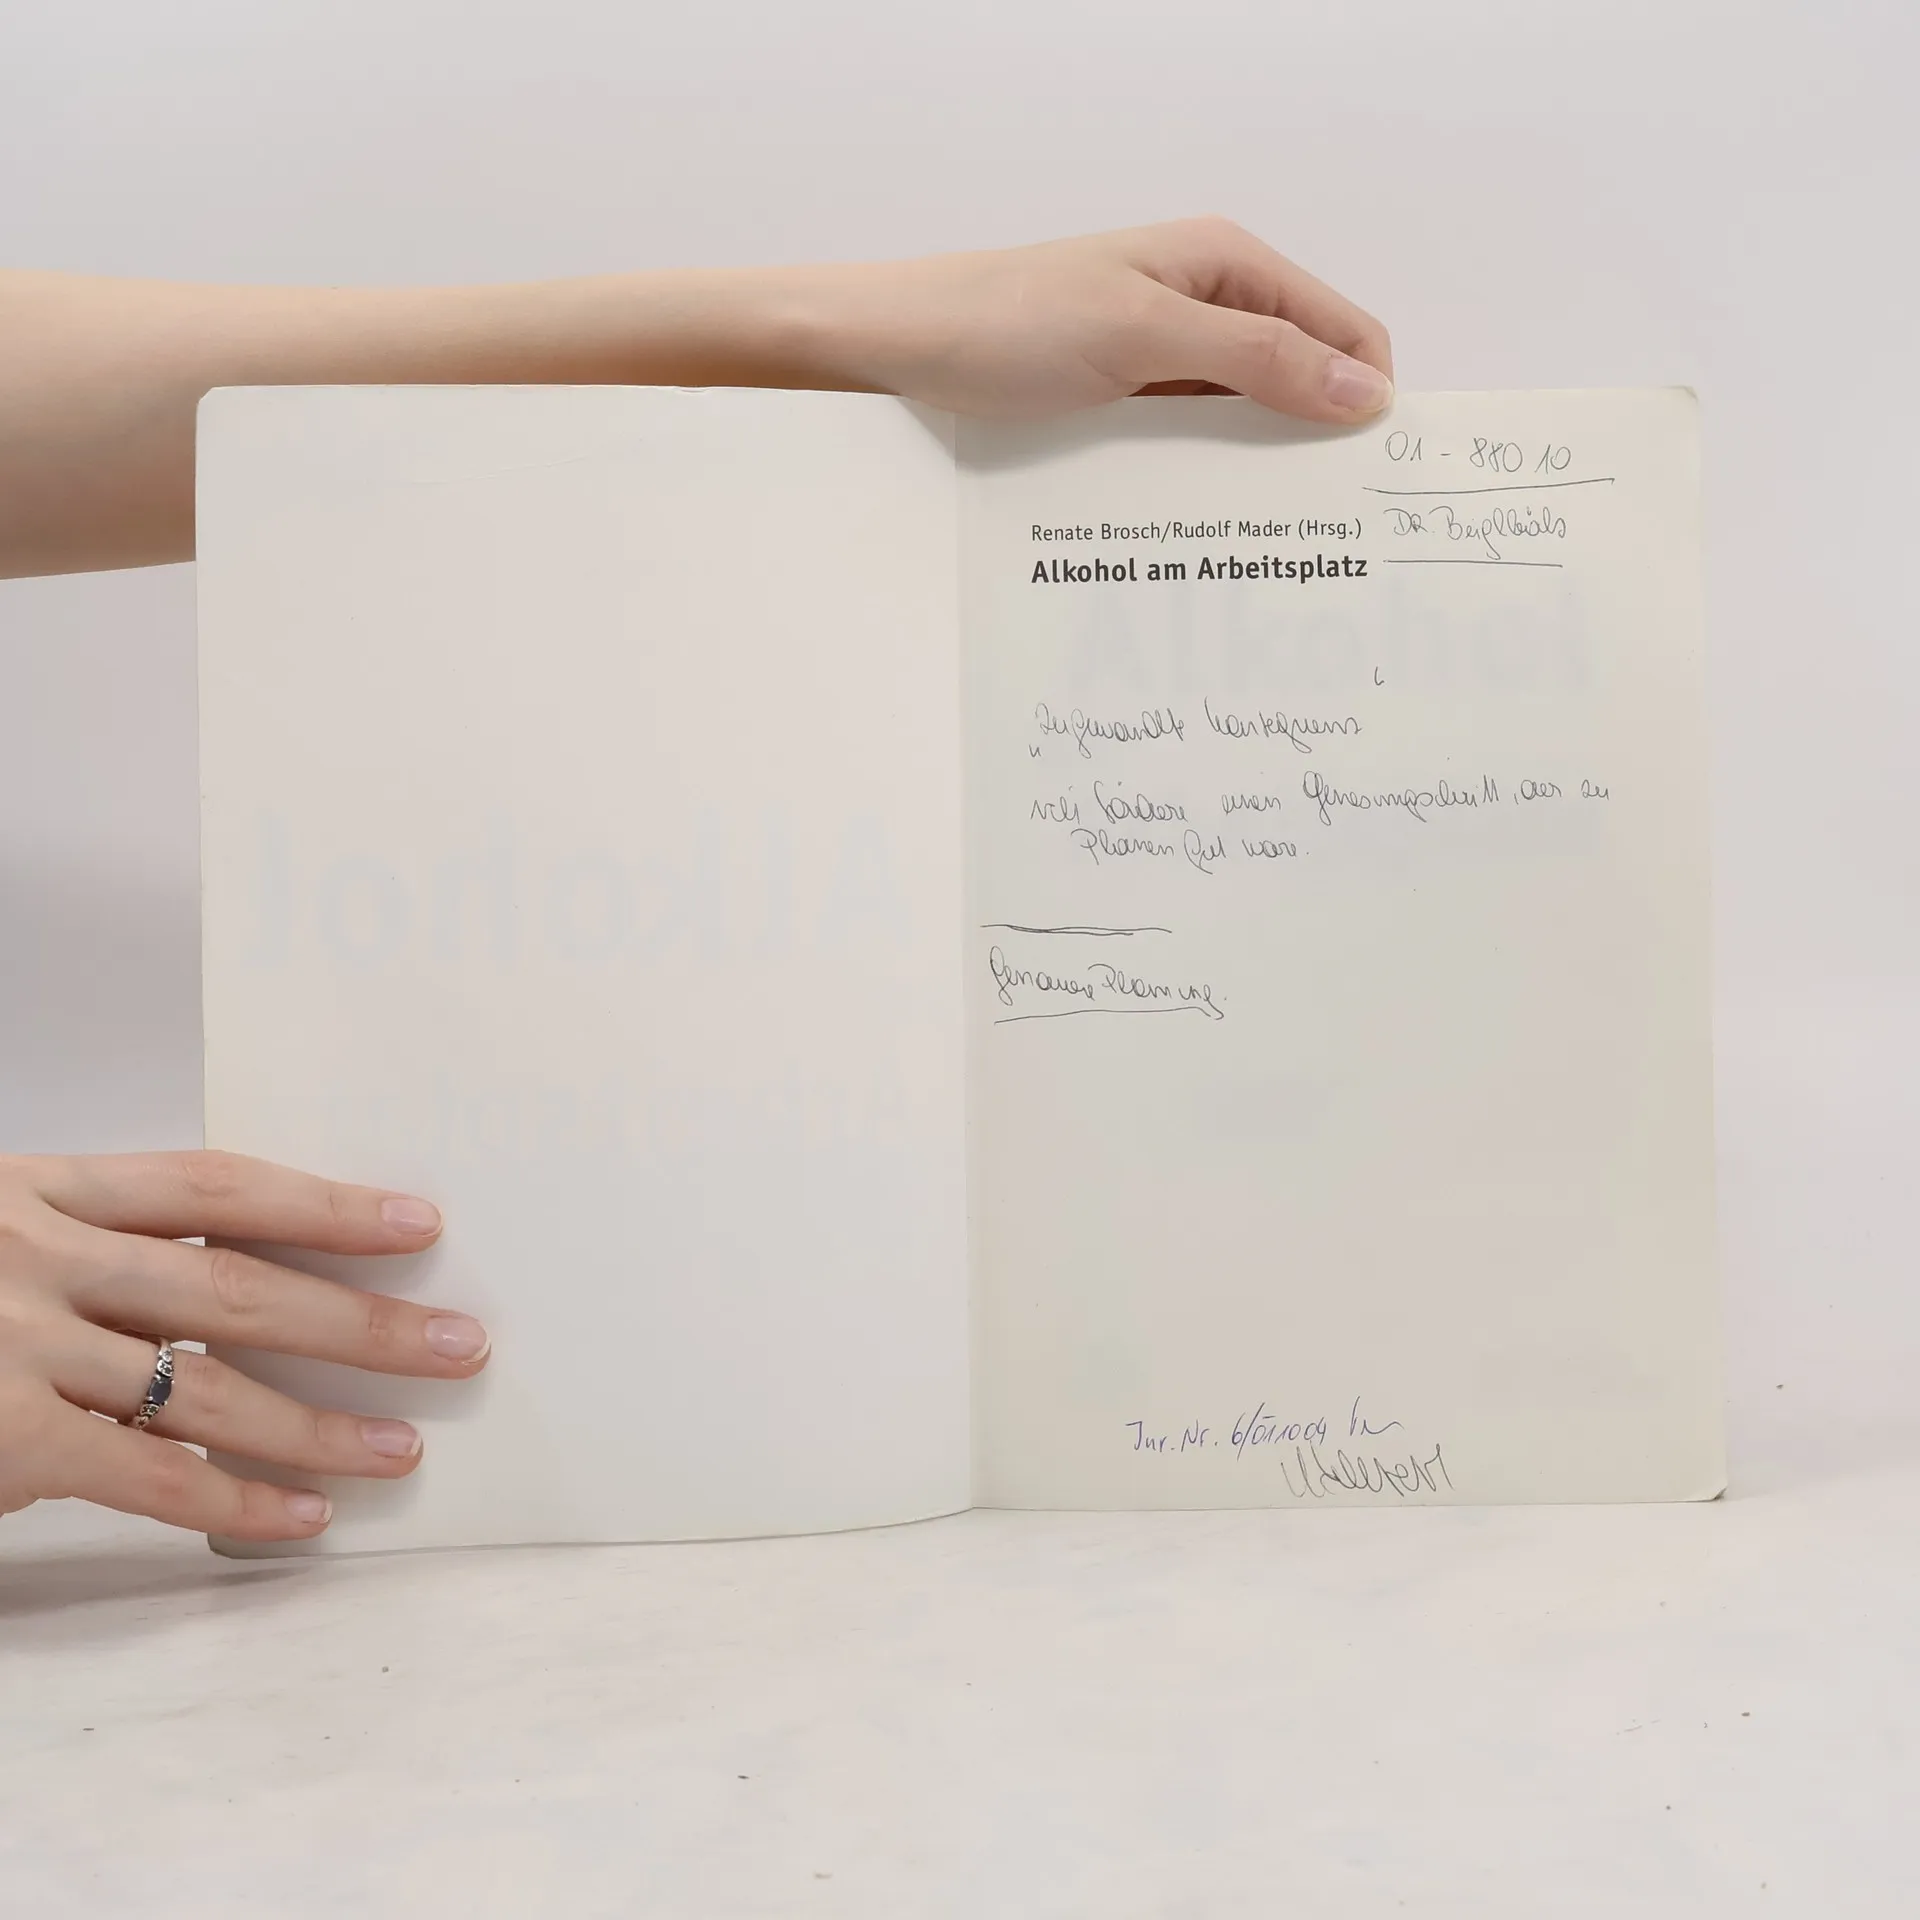 01 - 880 10
Renate Brosch/Rudolf Mader (Hrsg.)
DR.
Alkohol am Arbeitsplatz
"Zugewandte Konsequenz"
einen Genesungsschritt, der zu
Planen gut wäre.
Genaue Planung.
Inv. Nr. 6/011004